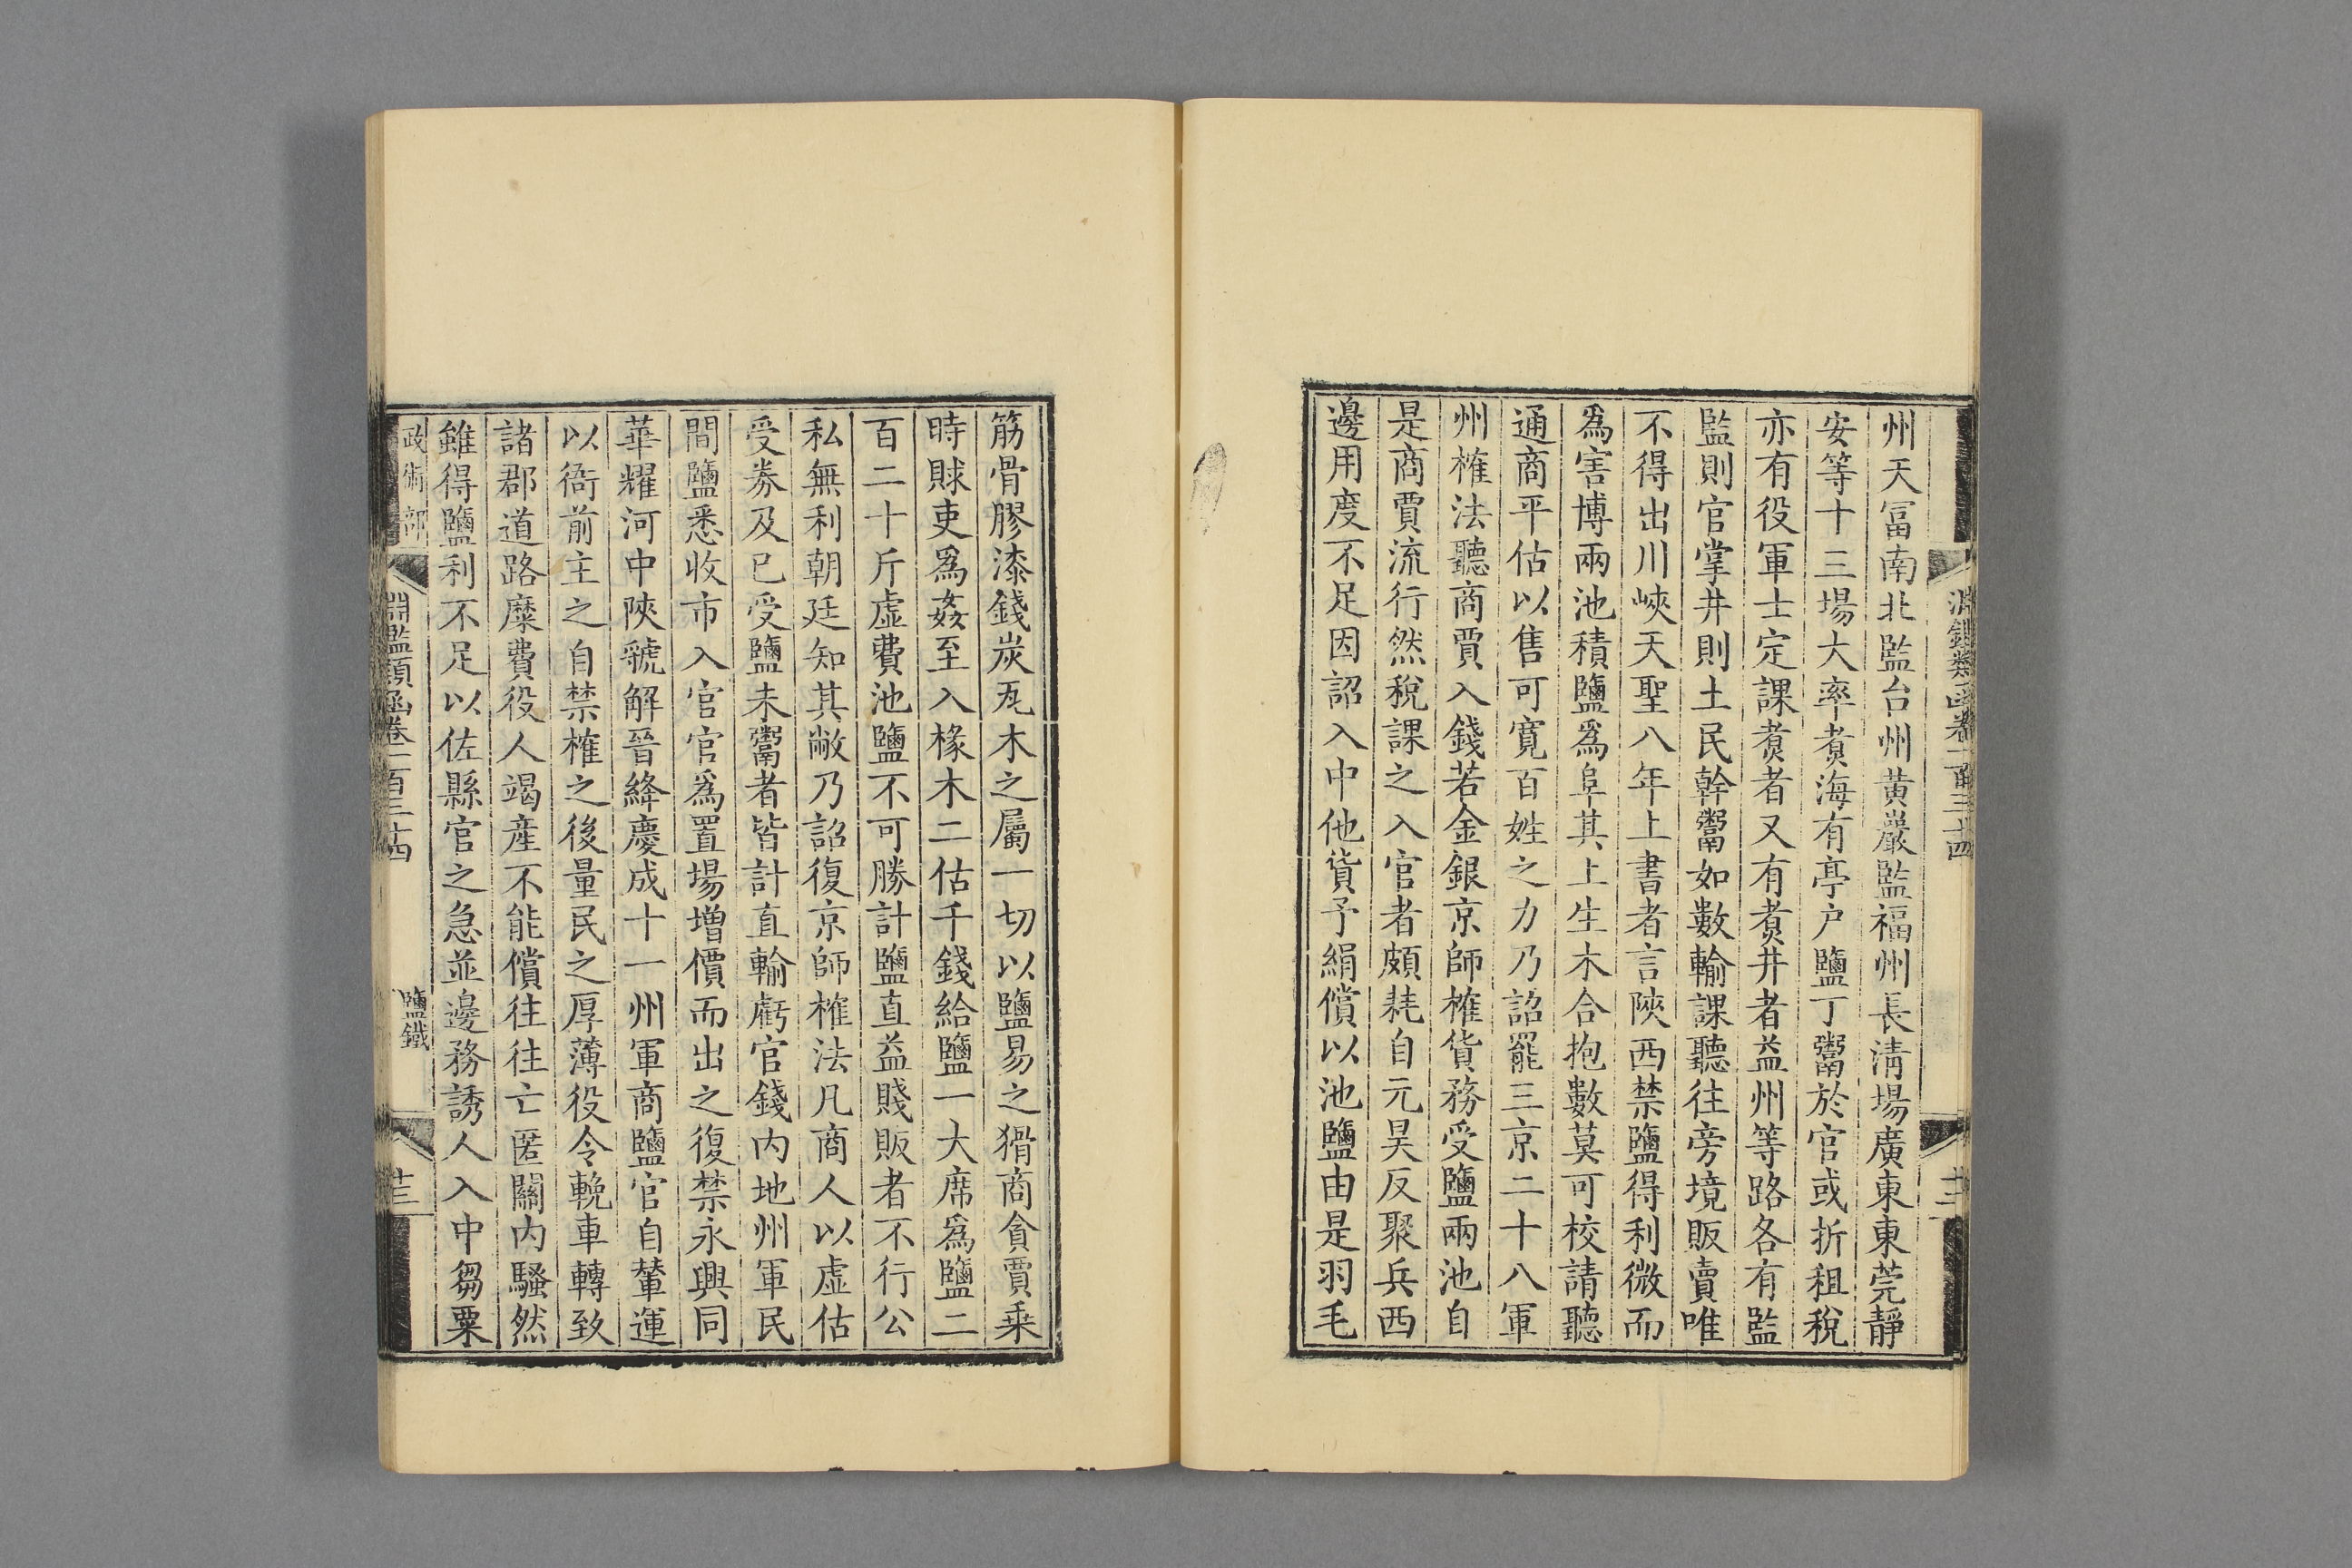 州天富南北監台州黃巖監福州長淸場廣東東莞靜
安等十三場大率煑海有亭户鹽丁鬻於官或折租稅
亦有役軍士定課煑者又有煑井者益州等路各有監
監則官掌井則土民幹鬻如數輸課聽往旁境販賣唯
不得出川峽天聖八年上書者言陜西禁鹽得利微而
爲害博兩池積鹽爲阜其上生木合抱數莫可校請聽
通商平估以售可寛百姓之力乃詔罷三京二十八軍
州榷法聽商賈入錢若金銀京師榷貨務受鹽兩池自
是商賈流行然稅課之入官者頗耗自元昊反聚兵西
邊用度不足因詔入中他貨予絹償以池鹽由是羽毛
筋骨膠漆錢炭瓦木之屬一切以鹽易之猾商貪賈乗
時賕吏爲姦至入椽木二估千錢給鹽一大席爲鹽二
百二十斤虛費池鹽不可勝計鹽直益賤販者不行公
私無利朝廷知其敝乃詔復京師榷法凡商人以虛估
受券及已受鹽未鬻者皆計直輸虧官錢内地州軍民
間鹽悉收市入官官爲置場增價而出之復禁永興同
華耀河中陜虢解晉絳慶成十一州軍商鹽官自輦運
以衙前主之自禁榷之後量民之厚薄役令輓車轉致
諸郡道路糜費役人竭產不能償往往亡匿關内騷然
雖得鹽利不足以佐縣官之急並邊務誘人入中芻粟
政術部 淵鑑類函卷一百三十四 鹽鐵 十三